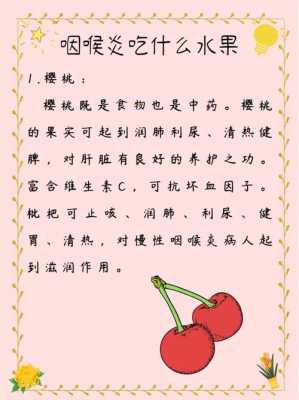 咽喉炎吃什么水果
1.樱桃：
樱桃既是食物也是中药。樱桃
的果实可起到润肺利尿、清热健
脾，对肝脏有良好的养护之功。
富含维生素C，可抗坏血因子。
枇杷可止咳、润肺、利尿、健
胃、清热，对慢性咽喉炎病人起
到滋润作用。